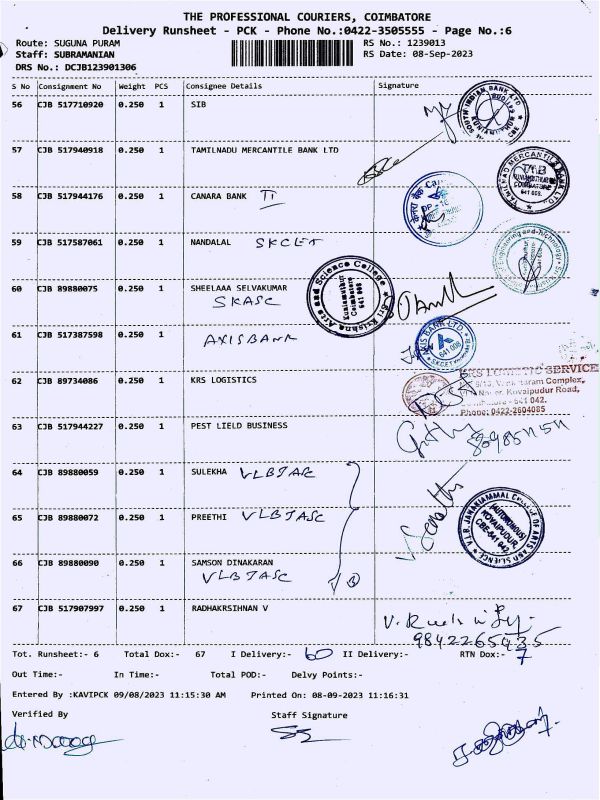 THE PROFESSIONAL COURIERS, COIMBATORE
Delivery Runsheet - PCK - Phone No.:0422-3505555 - Page No.:6
Route: SUGUNA PURAM
RS No.: 1239013
Staff: SUBRAMANIAN
RS Date: 08-Sep-2023
DRS No.: DCJB123901306
S No Consignment No Weight PCS Consignee Details Signature
56 CJB 517710920 0.250 1 SIB
57 CJB 517940918 0.250 1 TAMILNADU MERCANTILE BANK LTD
58 CJB 517944176 0.250 1 CANARA BANK
59 CJB 517587061 0.250 1 NANDALAL SKCET
60 CJB 89880075 0.250 1 SHEELAAA SELVAKUMAR
SKASC
61 CJB 517387598 0.250 1 AXISBANK
62 CJB 89734086 0.250 1 KRS LOGISTICS
63 CJB 517944227 0.250 1 PEST LIELD BUSINESS
64 CJB 89880059 0.250 1 SULEKHA VLBJASC
65 CJB 89880072 0.250 1 PREETHI VLBJASC
66 CJB 89880090 0.250 1 SAMSON DINAKARAN
VLBJASC
67 CJB 517907997 0.250 1 RADHAKRSIHNAN V
9842265435
SOUTH INDIAN BANK LTD
TAMILNAD MERCANTILE BANK LTD
T.M.B
COIMBATORE
641 008
Sri Krishna Arts and Science College
Kuniamuthur
Coimbatore
641 008
AXIS BANK LTD
641 008
KRS LOGISTIC SERVICE
Complex,
Kovaipudur Road,
641 042.
Phone: 0422-2604085
V.L.B. JANAKIAMMAL COLLEGE OF ARTS AND SCIENCE
(AUTONOMOUS)
KOVAIPUDUR,
CBE-641 042
Tot. Runsheet:- 6 Total Dox:- 67 I Delivery:- 60 II Delivery:- RTN Dox:- 7
Out Time:- In Time:- Total POD:- Delvy Points:-
Entered By :KAVIPCK 09/08/2023 11:15:30 AM Printed On: 08-09-2023 11:16:31
Verified By Staff Signature